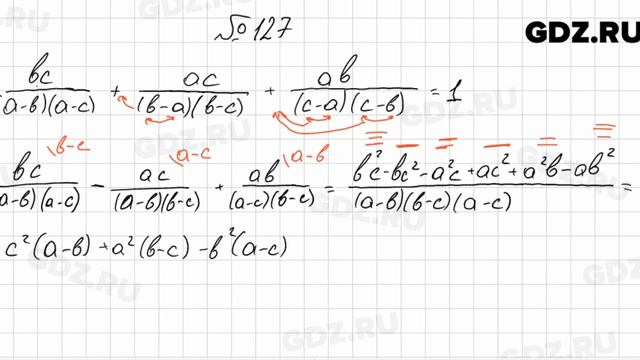 № 127
GDZ.RU
bc/(a-b)(a-c) + ac/(b-a)(b-c) + ab/(c-a)(c-b) = 1
\b-c \a-c \a-b
bc/(a-b)(a-c) - ac/(a-b)(b-c) + ab/(a-c)(b-c) = b²c-bc²-a²c+ac²+a²b-ab²/(a-b)(b-c)(a-c) =
c²(a-b)+a²(b-c)-b²(a-c)